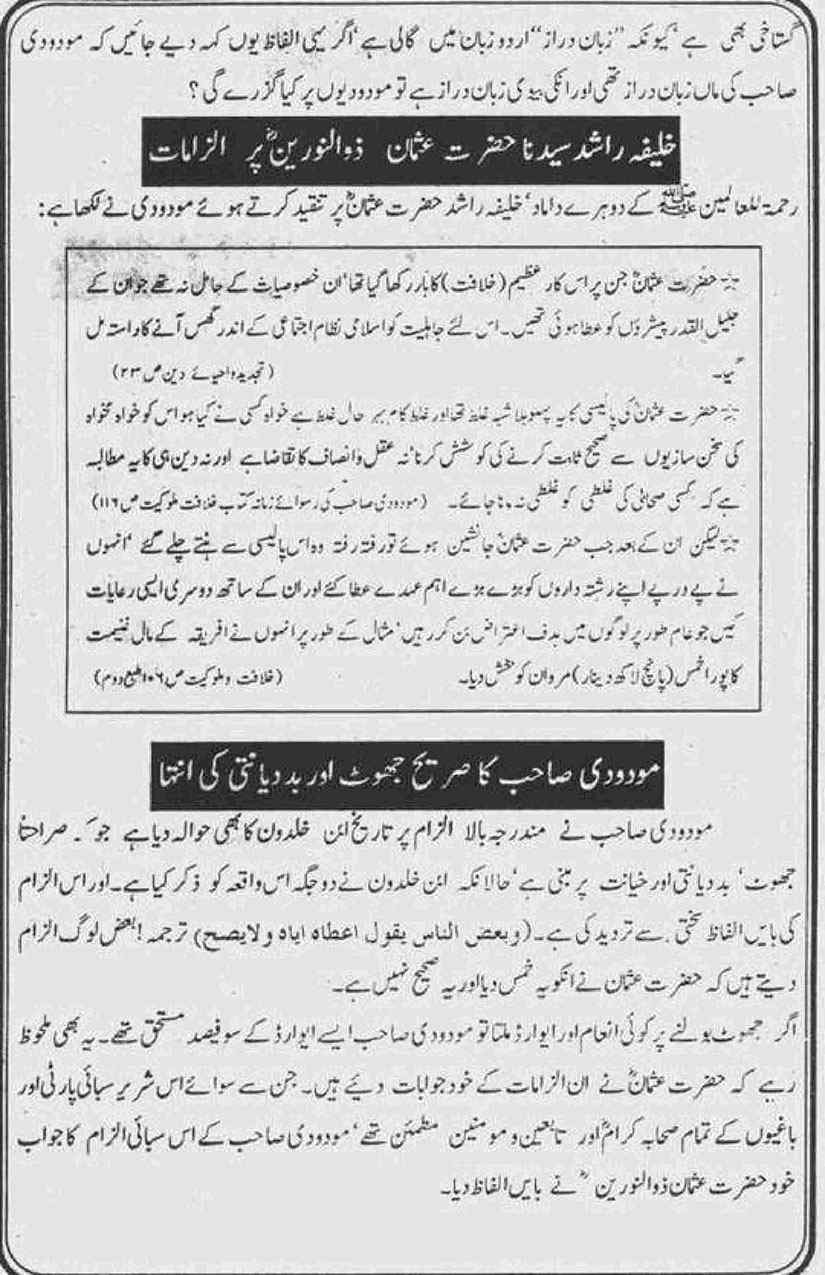 گستاخی بھی ہے‘ کیونکہ ”زبان دراز“ اردو زبان میں گالی ہے‘ اگر یہی الفاظ یوں کہہ دیے جائیں کہ مودودی
صاحب کی ماں زبان دراز تھی اور انکی بیوی زبان دراز ہے تو مودودیوں پر کیا گزرے گی؟
خلیفہ راشد سیدنا حضرت عثمان ذوالنورینؓ پر الزامات
رحمۃ للعالمین ﷺ کے دوہرے داماد‘ خلیفہ راشد حضرت عثمانؓ پر تنقید کرتے ہوئے مودودی نے لکھا ہے:
حضرت عثمانؓ جن پر اس کار عظیم (خلافت) کا بار رکھا گیا تھا‘ ان خصوصیات کے حامل نہ تھے جو ان کے
جلیل القدر پیشرؤں کو عطا ہوئی تھیں۔ اس لئے جاہلیت کو اسلامی نظام اجتماعی کے اندر گھس آنے کا راستہ مل
گیا۔ (تجدید و احیائے دین ص ۲۳)
حضرت عثمانؓ کی پالیسی کا یہ پہلو بلا شبہ غلط تھا اور غلط کام بہر حال غلط ہے خواہ کسی نے کیا ہو اس کو خواہ مخواہ
کی سخن سازیوں سے صحیح ثابت کرنے کی کوشش کرنا‘ نہ عقل و انصاف کا تقاضا ہے اور نہ دین ہی کا یہ مطالبہ
ہے کہ کسی صحابی کی غلطی کو غلطی نہ مانا جائے۔ (مودودی صاحب کی رسوائے زمانہ کتاب خلافت ملوکیت ص ۱۱۶)
لیکن ان کے بعد جب حضرت عثمانؓ جانشین ہوئے تو رفتہ رفتہ وہ اس پالیسی سے ہٹتے چلے گئے ‘انہوں
نے پے در پے اپنے رشتہ داروں کو بڑے بڑے اہم عہدے عطا کئے اور ان کے ساتھ دوسری ایسی رعایات
کیں جو عام طور پر لوگوں میں ہدف اعتراض بن کر رہیں‘ مثال کے طور پر انہوں نے افریقہ کے مال غنیمت
کا پورا خمس (پانچ لاکھ دینار) مروان کو بخش دیا۔ (خلافت و ملوکیت ص ۱۰۶ طبع دوم)
مودودی صاحب کا صریح جھوٹ اور بددیانتی کی انتہا
مودودی صاحب نے مندرجہ بالا الزام پر تاریخ ابن خلدون کا بھی حوالہ دیا ہے جو کہ صراحتاً
جھوٹ‘ بددیانتی اور خیانت پر مبنی ہے‘ حالانکہ ابن خلدون نے دو جگہ اس واقعہ کو ذکر کیا ہے۔ اور اس الزام
کی بایں الفاظ سختی سے تردید کی ہے۔ (وبعض الناس يقول اعطاه اياه ولايصح) ترجمہ! بعض لوگ الزام
دیتے ہیں کہ حضرت عثمان نے انکو یہ خمس دیا اور یہ صحیح نہیں ہے۔
اگر جھوٹ بولنے پر کوئی انعام اور ایوارڈ ملتا تو مودودی صاحب ایسے ایوارڈ کے سو فیصد مستحق تھے۔ یہ بھی ملحوظ
رہے کہ حضرت عثمانؓ نے ان الزامات کے خود جوابات دئیے ہیں۔ جن سے سوائے اس شریر سبائی پارٹی اور
باغیوں کے تمام صحابہ کرامؓ اور تابعین و مومنین مطمئن تھے‘ مودودی صاحب کے اس سبائی الزام کا جواب
خود حضرت عثمان ذوالنورینؓ نے بایں الفاظ دیا۔